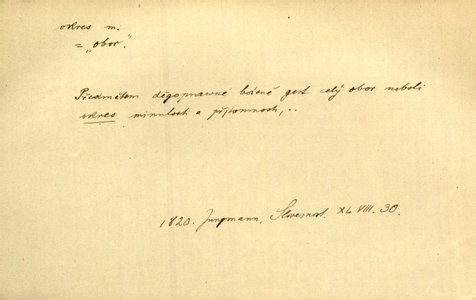 okres m.
= „obor“.
Předmětem děgoprawné básně gest celý obor neboli
okres minulosti a přítomnosti, ..
1820. Jungmann, Slowesnost. XLVIII. 30.